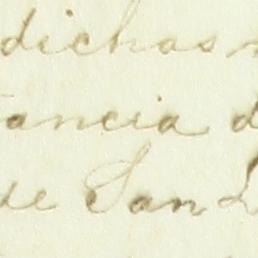 dichas
ancia d
de San L